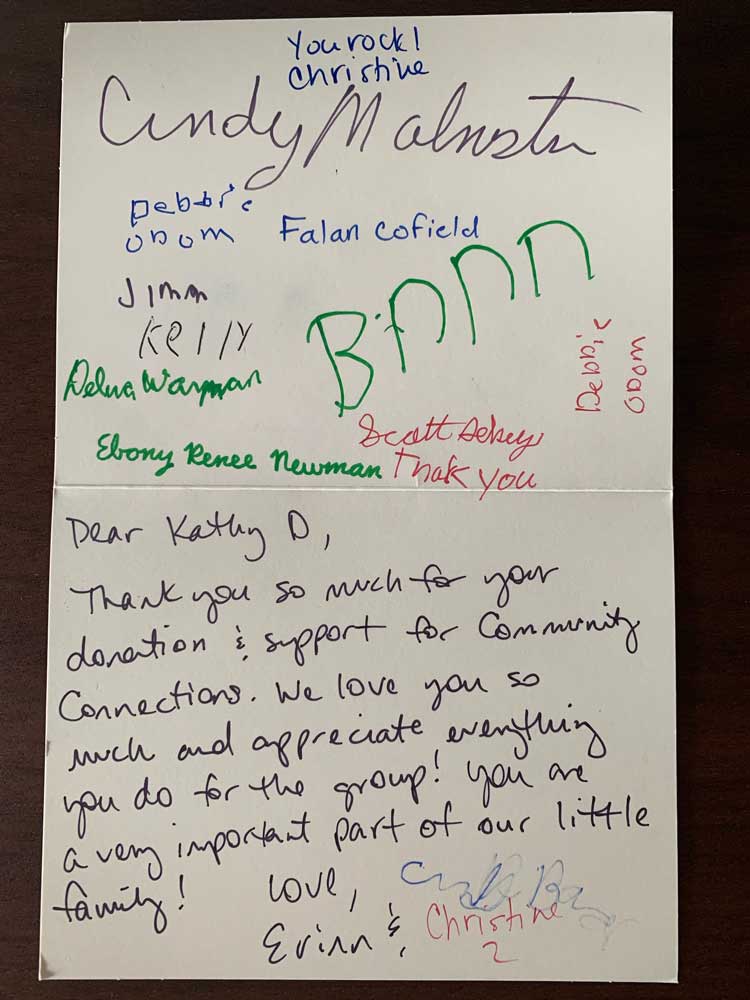 You rock!
Christine
Cindy
Debbie
Odom
Falan Cofield
Jimm
Kelly
Debbie
Odom
Scott
Ebony Renee Newman
Thak you
Dear Kathy D,
Thank you so much for your
donation & support for Community
Connections. We love you so
much and appreciate everything
you do for the group! You are
a very important part of our little
family!
Love,
Erinn &
Christine
2